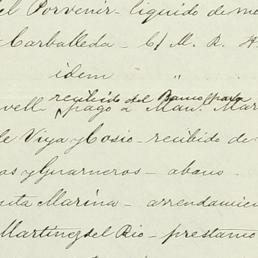 el Porvenir - liquido de me
Carballeda - C/ M. R.
idem "
recibido del Banco para
well pago a Man. Mar
de Viya y Cosio - recibido de
as y Guarneros - abono
nita Marina - arrendamien
Martinez del Rio - prestamo